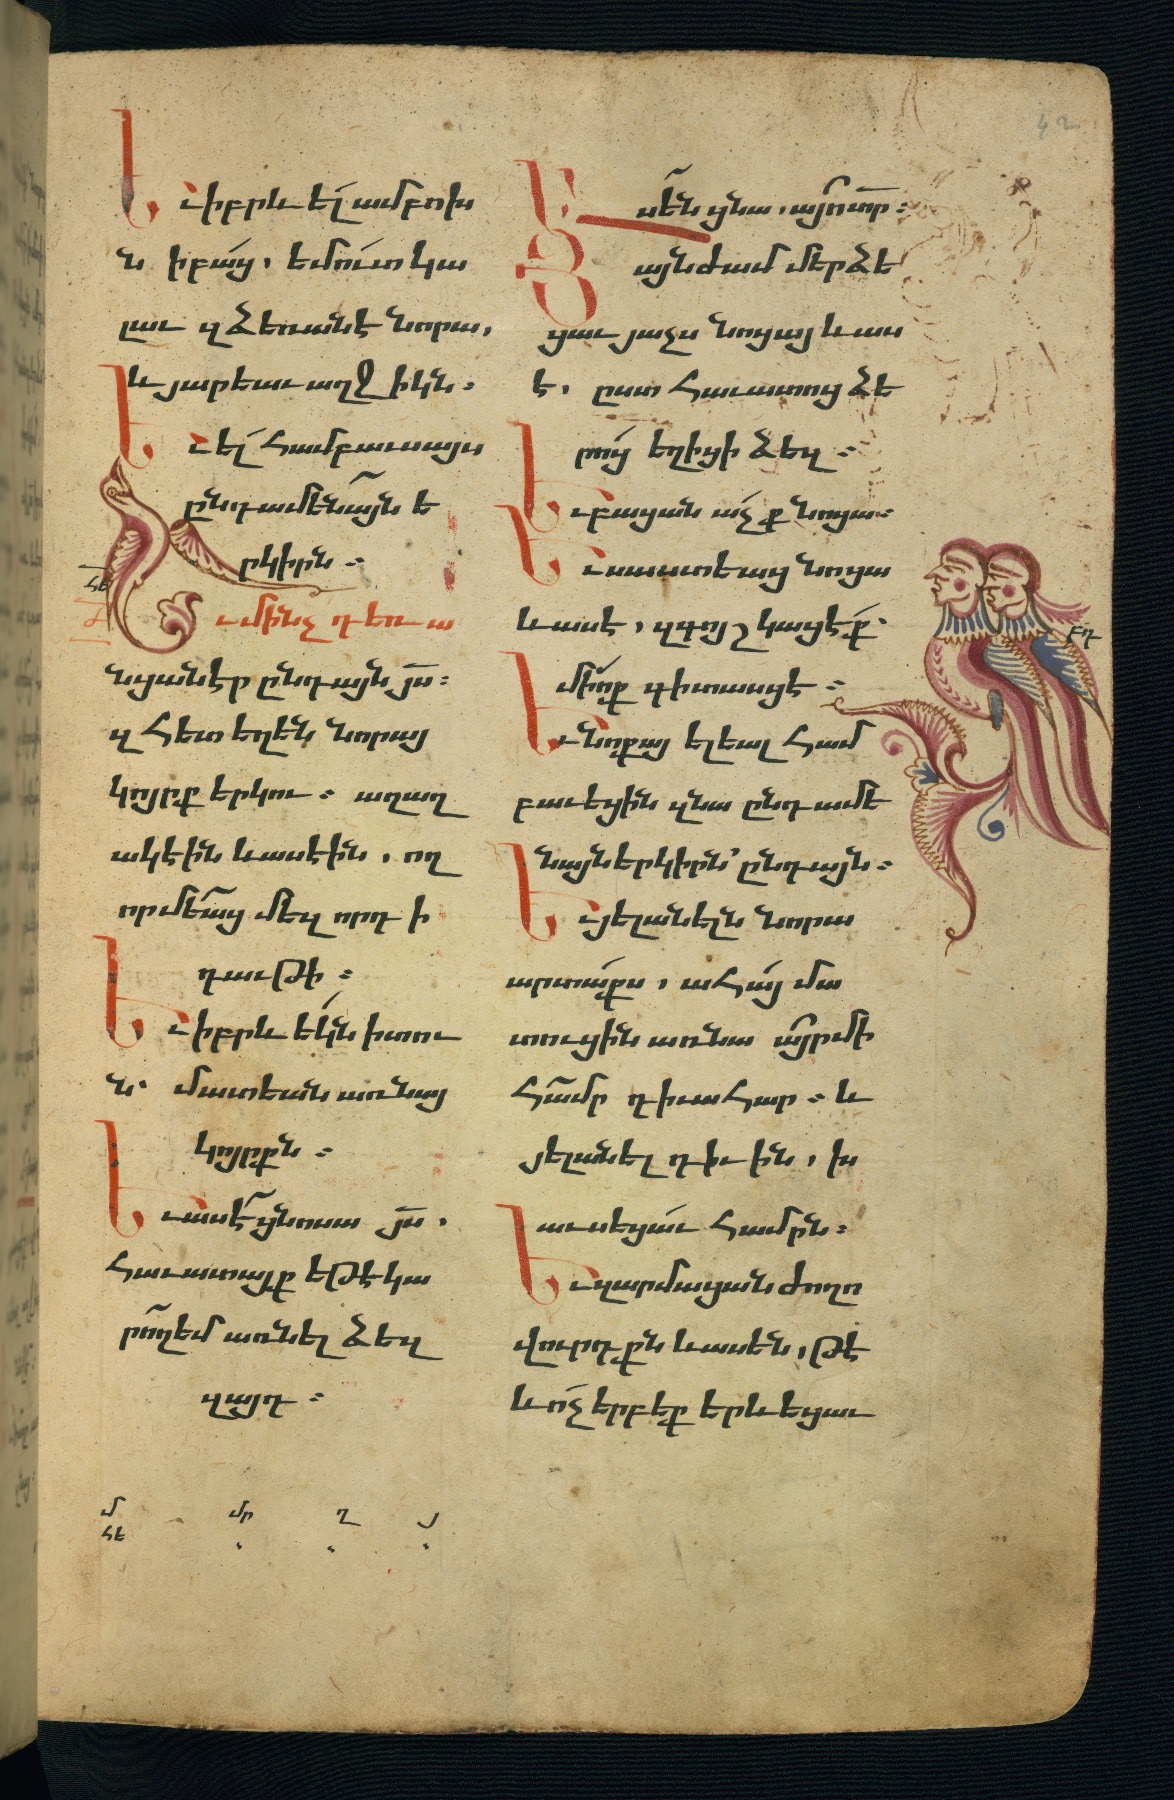 Եւ իբրև ել ամբոխ
ն ի բաց, եմուտ կա
լաւ զձեռանէ նորա,
և յարեաւ աղջիկն ։
Եւ ել համբաւս այս
ընդ ամենայն ե
րկիրն ։
Եւ մինչ դեռ ա
նցանէր ընդ այն յս ։
զհետ եղեն նորայ
կոյրք երկու ։ աղաղ
ակէին և ասէին, ող
որմեաց մեզ որդի
դաւթի ։
Եւ իբրև եկն ի տու
ն՝ մատեան առ նայ
կոյրքն ։
Եւ ասէ ցնոսա յս,
հաւատայք եթէ կա
րօղ եմ առնել ձեզ
զայդ ։
Ասեն ցնա, այո տր ։
Յայնժամ մերձե
ցաւ յաչս նոցայ և աս
է, ըստ հաւատոց ձե
րոց եղիցի ձեզ ։
Եւ բացան աչք նոցա ։
Եւ սաստեաց նոցա
և ասէ, զգոյշ կացէք՝
մի ոք գիտասցէ ։
Եւ նոքայ ելեալ համ
բաւեցին զնա ընդ ամե
նայն երկիրն՝ ընդ այն ։
Եւ յելանելն նորա
արտաքս, ահայ մա
տուցին առ նա այր մի
համր դիւահար ։ և
յելանել դիւին, խ
աւսեցաւ համրն ։
Եւ զարմացան ժողո
վուրդքն և ասեն, թէ
և ոչ երբեք երևեցաւ